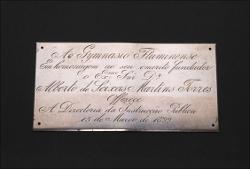 Ao Gymnasio Fluminense
Em homenagem ao seu emerito fundador
o Exmo Snr Dr
Alberto de Seixas Martins Torres
Offerece
A Directoria da Instrucção Publica
15 de Março de 1899